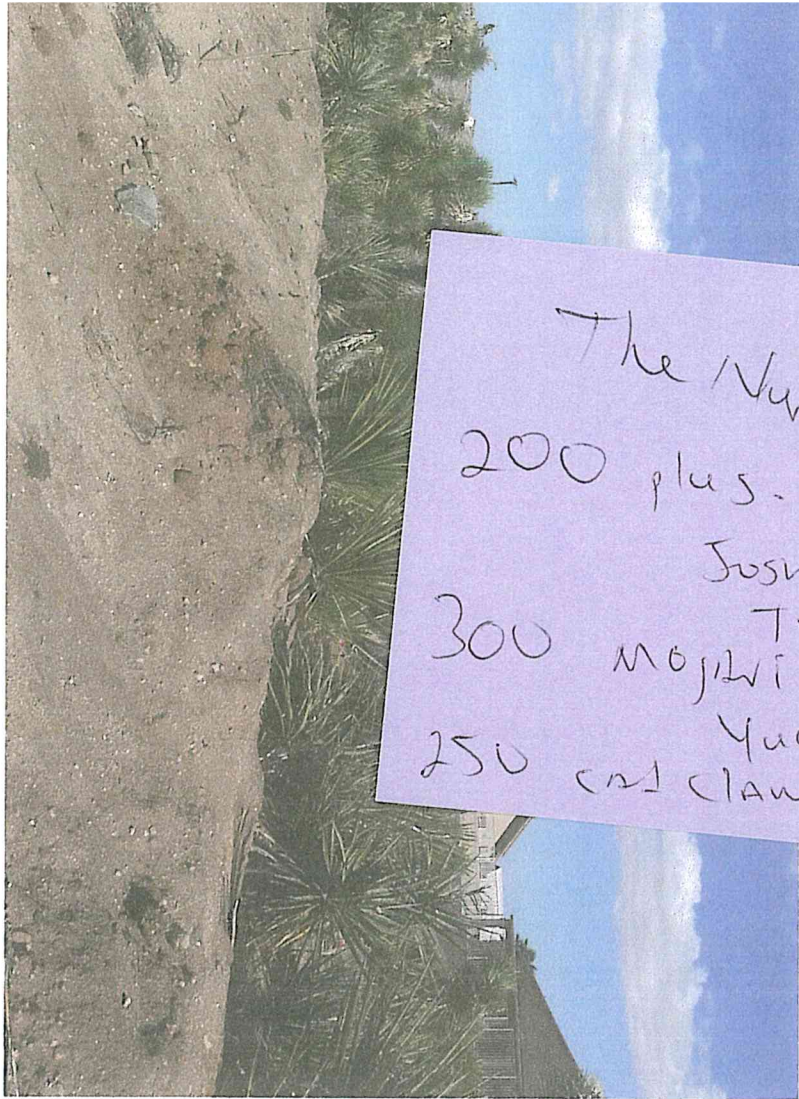 The Nur
200 plus.
Josh
T
300 Mojavi
Yuc
250 cat claw